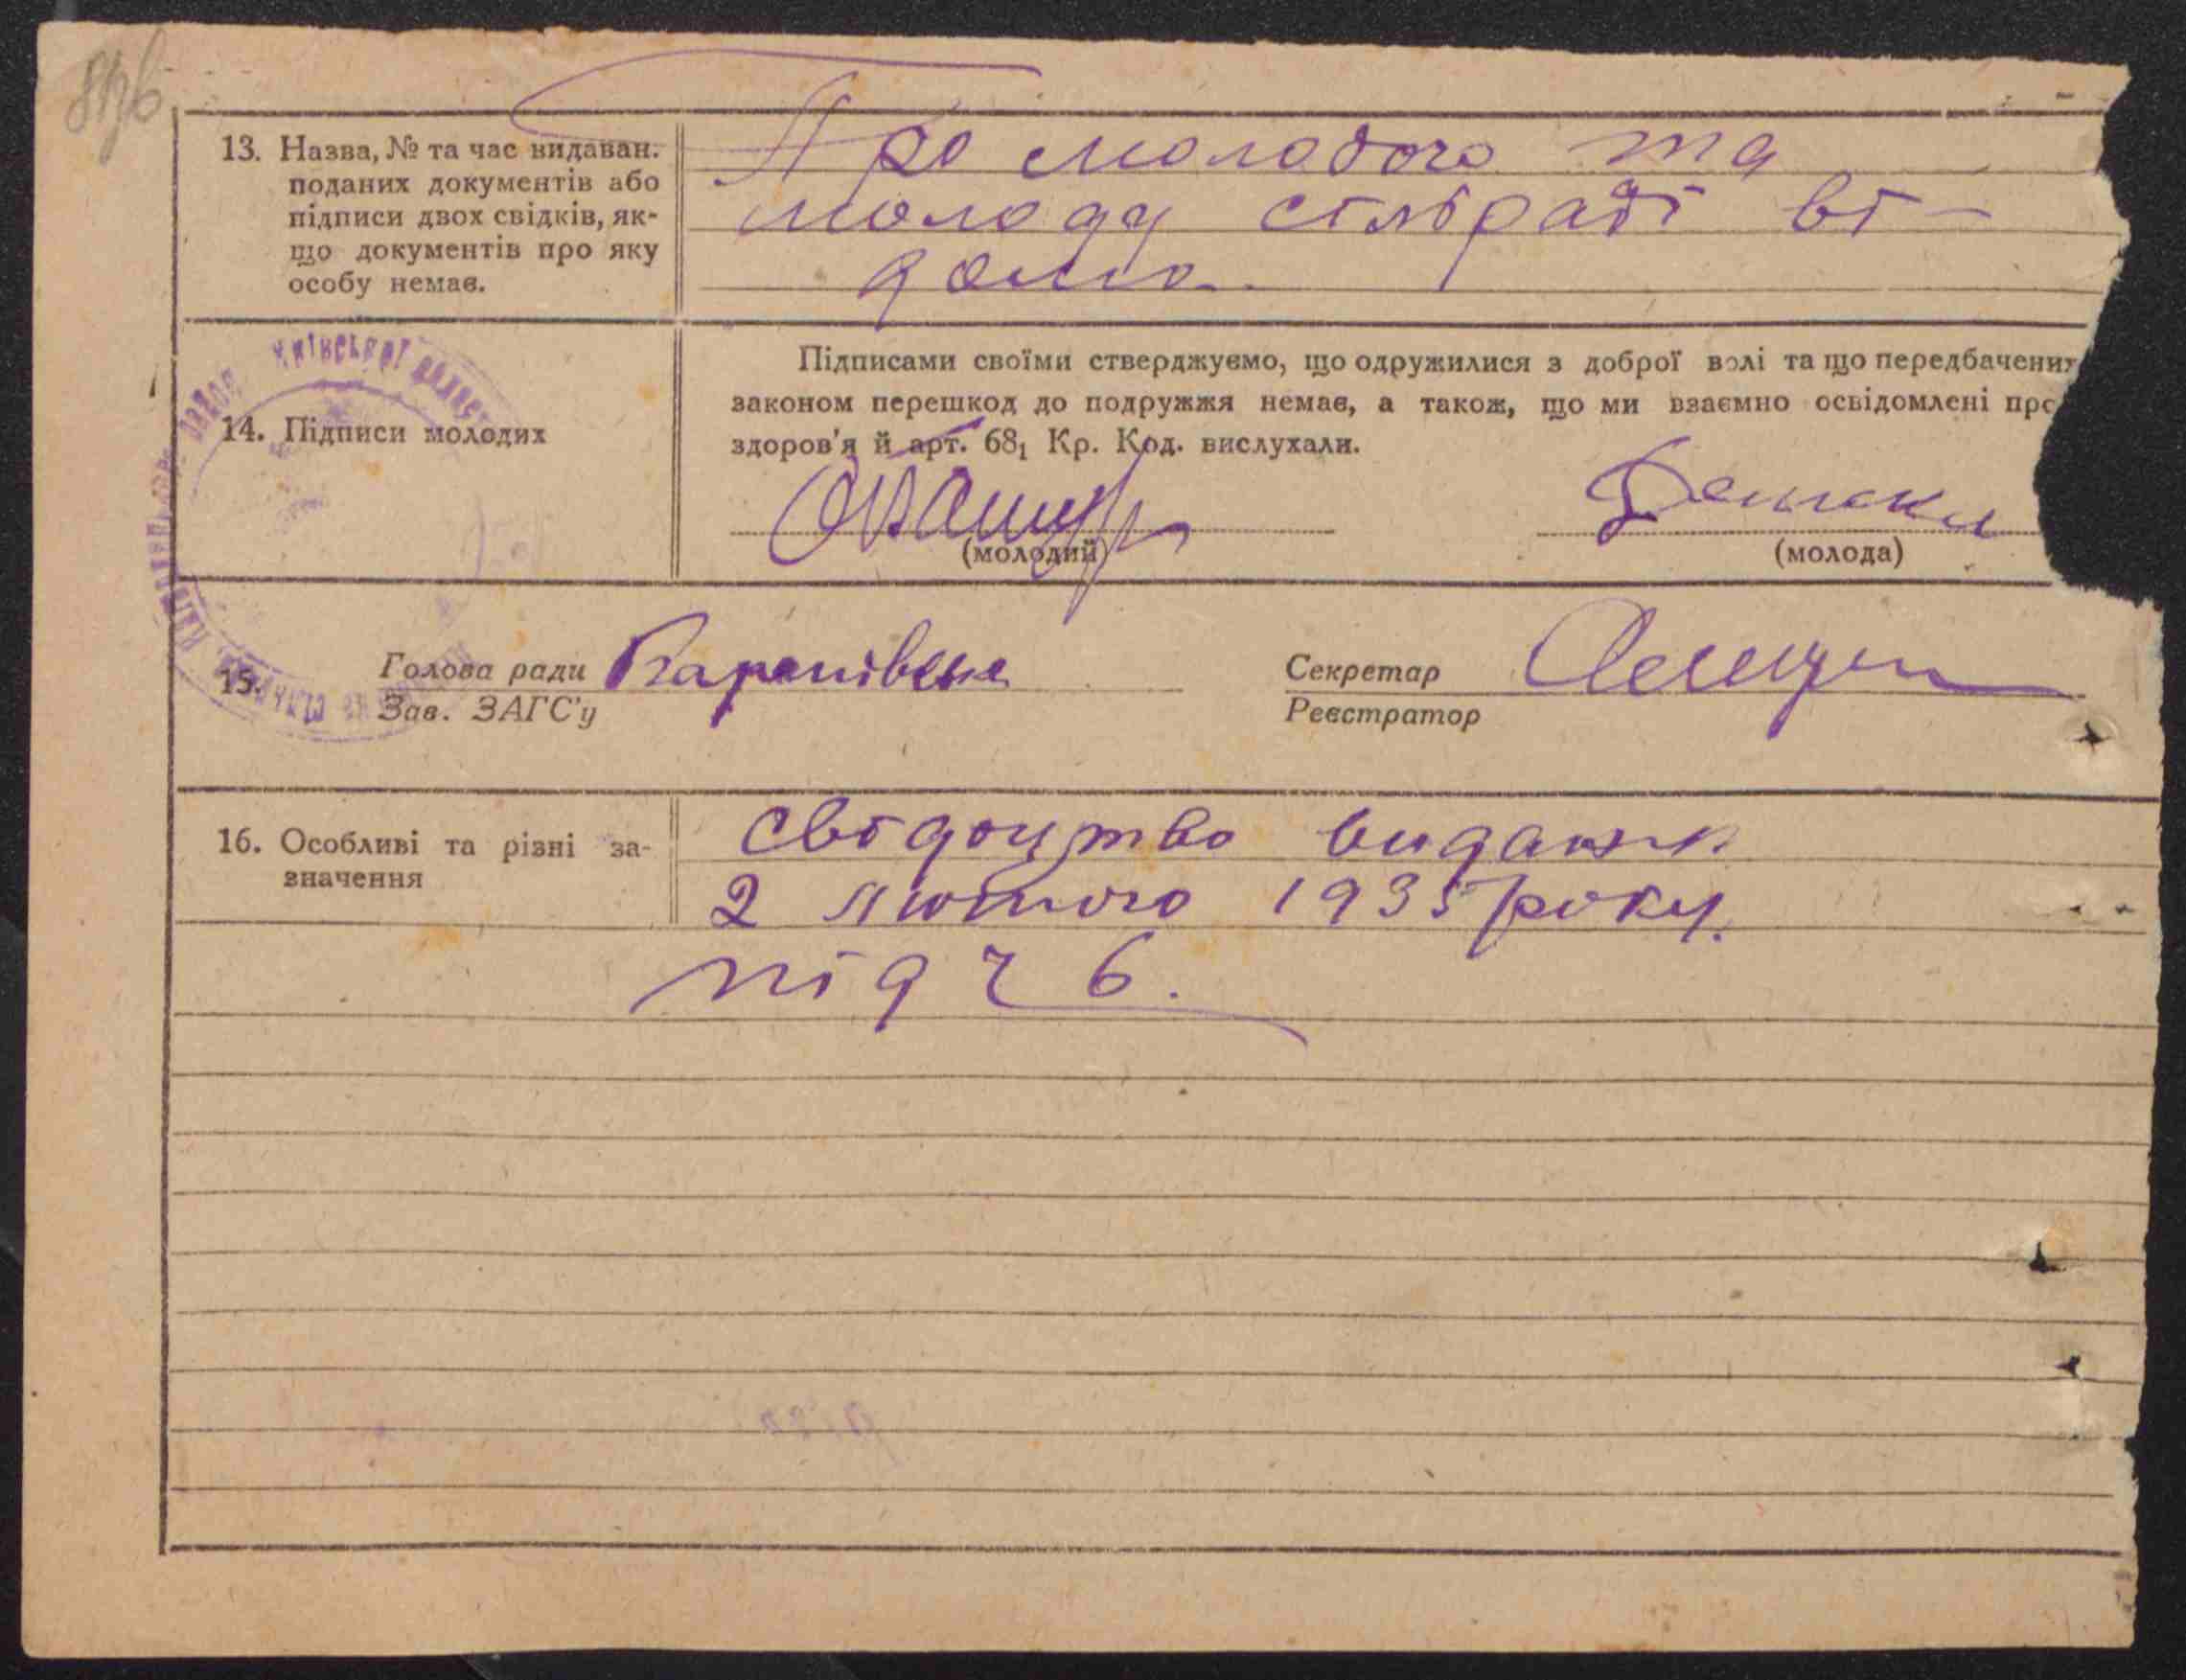 13. Назва, № та час видаван.
поданих документів або
підписи двох свідків, як-
що документів про яку
особу немає.
Про молодого та
молоду сільраді ві-
домо.
14. Підписи молодих
Підписами своїми стверджуємо, що одружилися з доброї волі та що передбачених
законом перешкод до подружжя немає, а також, що ми взаємно освідомлені про
здоров'я й арт. 68₁ Кр. Код. вислухали.
(молодий)
(молода)
Київської
15. Голова ради
Зав. ЗАГС'у
Секретар
Реєстратор
16. Особливі та різні за-
значення
Свідоцтво видане
2 лютого 1935 року.
під ч 6.